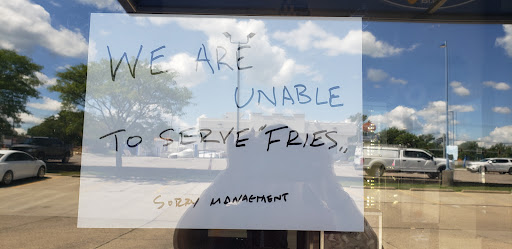 WE ARE
UNABLE
TO SERVE "FRIES„
SORRY MANAGEMENT